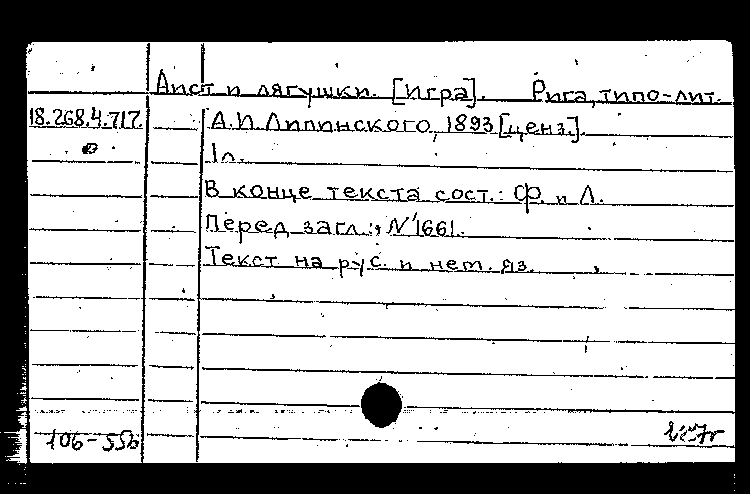 Аист и лягушки. [Игра]. Рига, типо-лит.
18.268.4.717 А.И. Липинского, 1893 [ценз.].
1л.
В конце текста сост.: Ф. и Л.
Перед загл.: №1661.
Текст на рус. и нем. яз.
106-55б